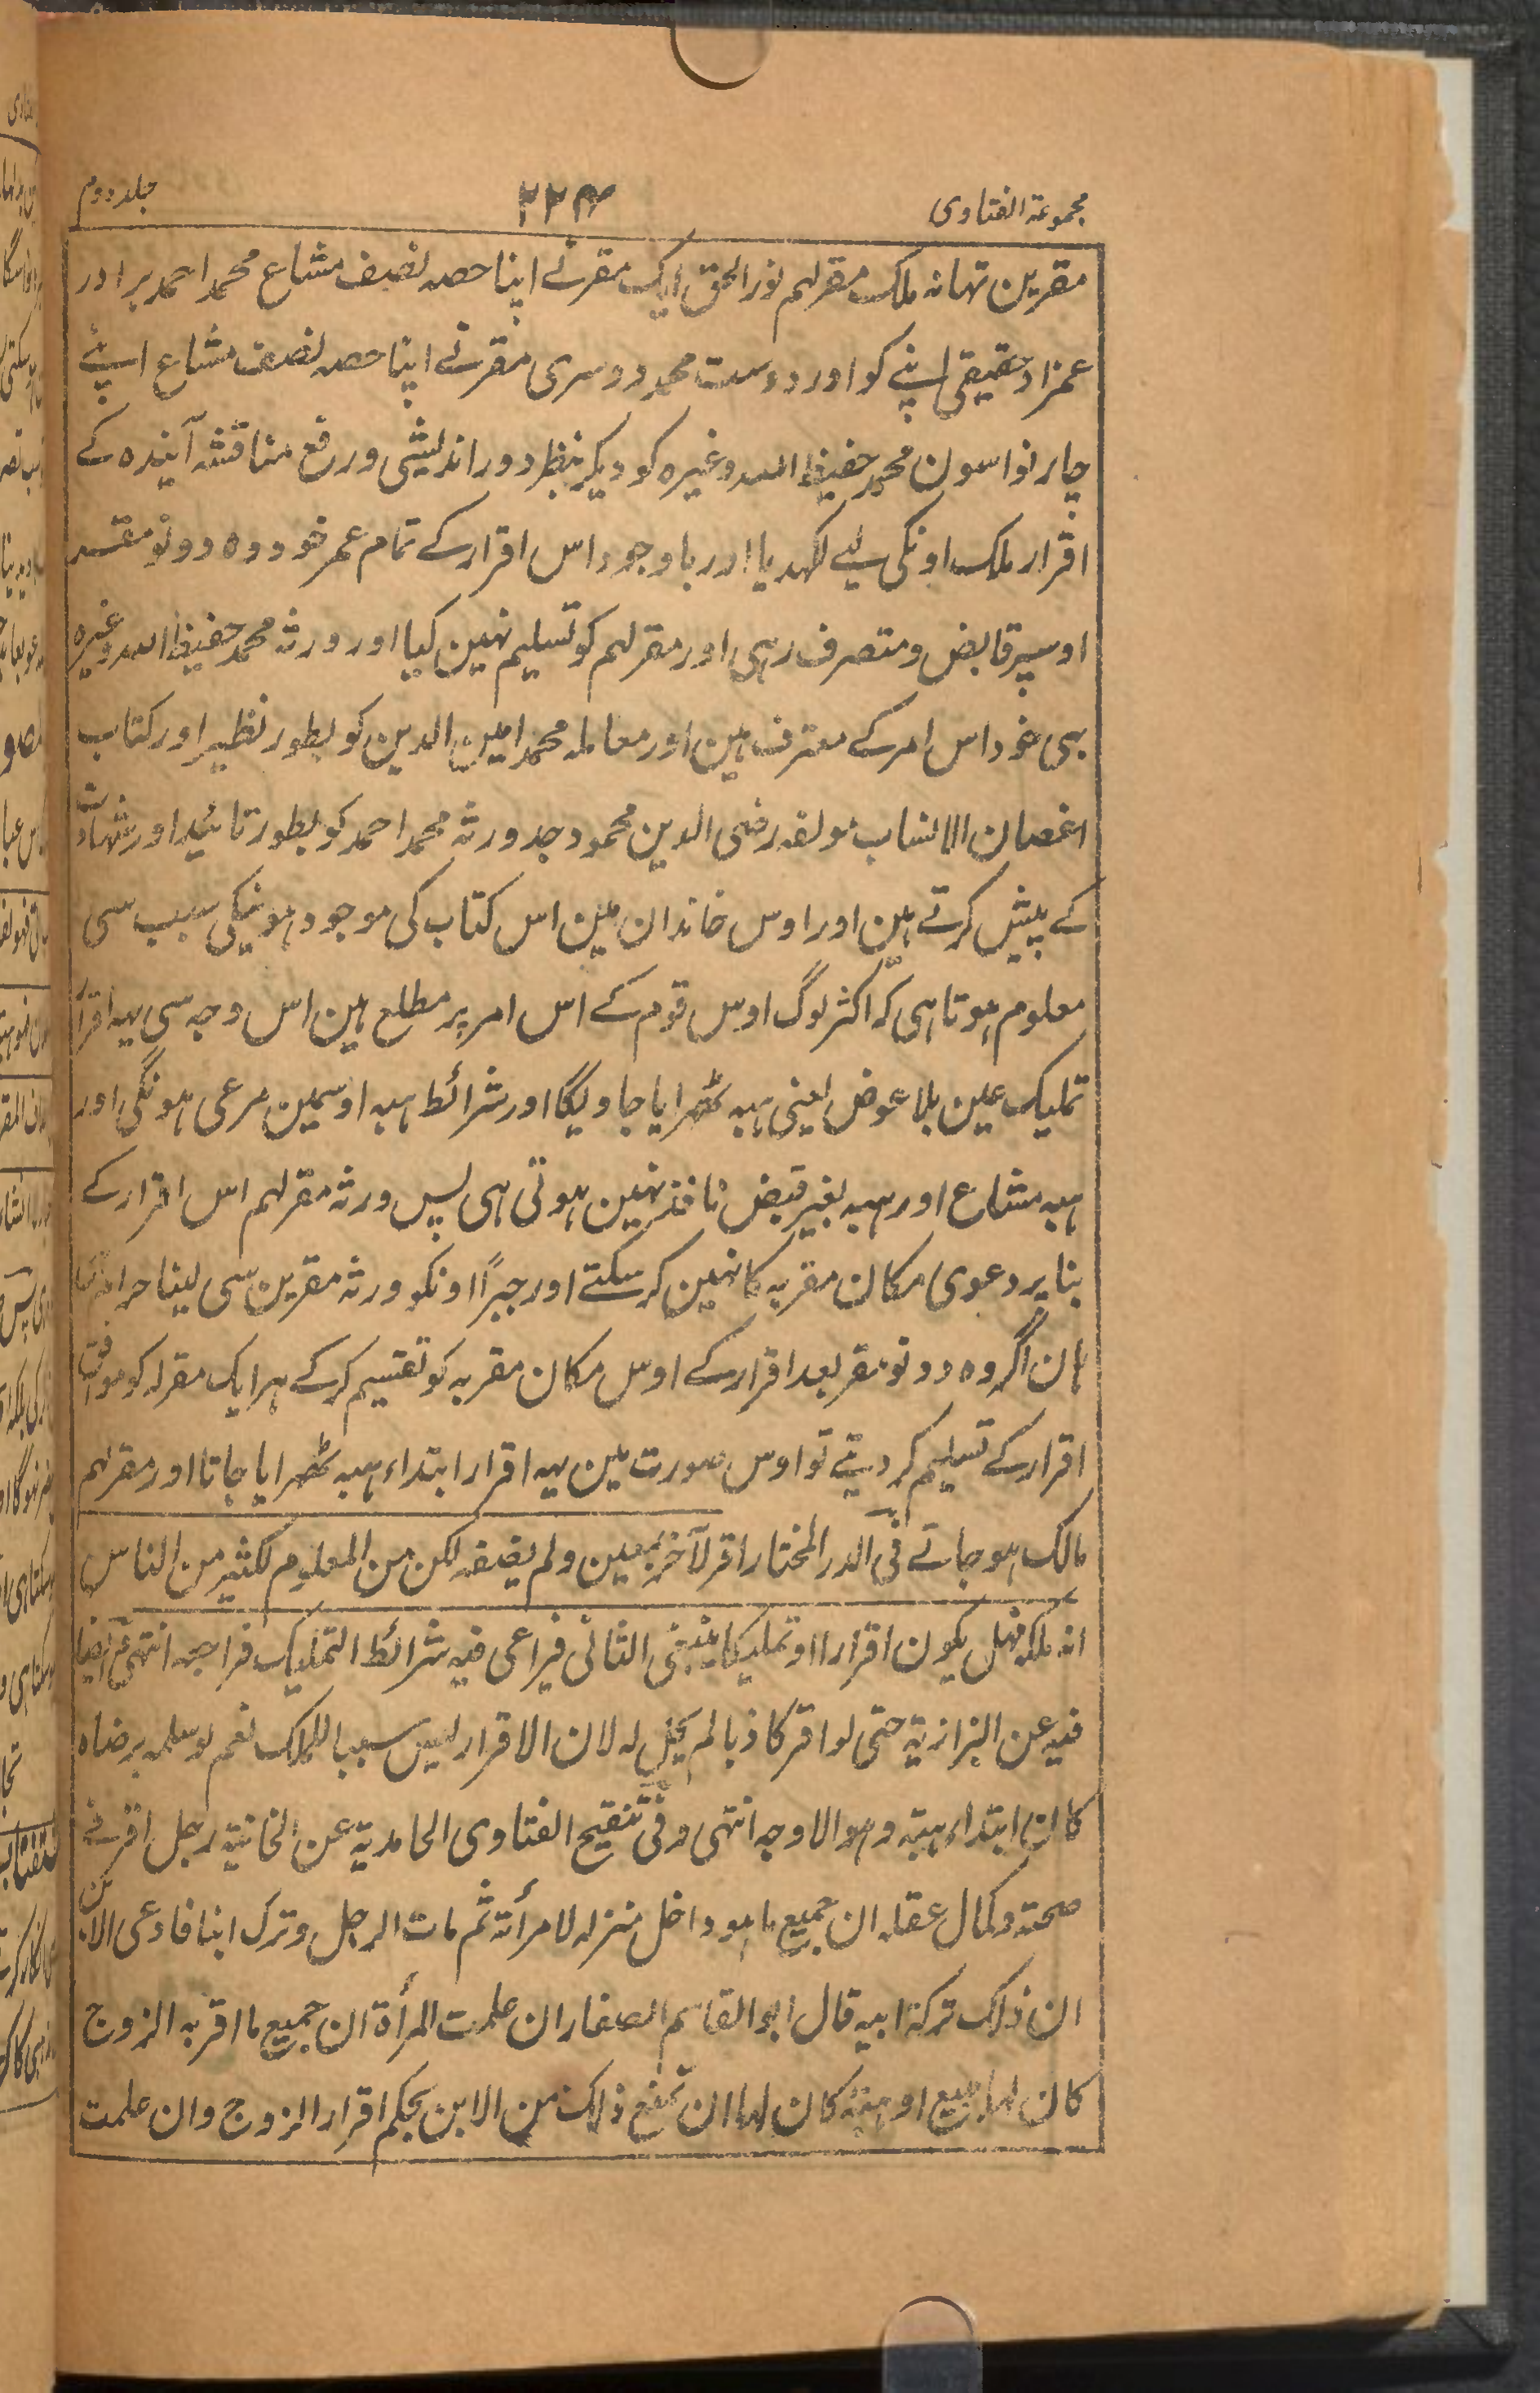 مجموعۃ الفتاوی ۲۲۴ جلد دوم
مقرین تھا نہ ملک مقرلہم نور الحق ایک مقرنے اپنا حصہ نصف مشاع محمد احمد برادر
عمزاد حقیقی اپنے کو اور دوست محمد دوسری مقرنے اپنا حصہ نصف مشاع اپنے
چار نواسون محمد حفیظ اللہ وغیرہ کو دیکر بنظر دور اندیشی ورفع مناقشہ آیندہ کے
اقرار ملک اونکی لیے لکھدیا اور باوجود اس اقرار کے تمام عمر خود وہ دونو مقر
اوسپر قابض ومتصرف رہی اور مقرلہم کو تسلیم نہین کیا اور ورثہ محمد حفیظ اللہ وغیرہ
بہی خود اس امر کے معترف ہین اور معاملہ محمد امین الدین کو بطور نظیر اور کتاب
اغصان الانساب مولفہ رضی الدین محمود جد ورثہ محمد احمد کو بطور تائید اور شہادت
کے پیش کرتے ہین اور اوس خاندان مین اس کتاب کی موجود ہونیکی سبب سی
معلوم ہوتا ہی کہ اکثر لوگ اوس قوم کے اس امر پر مطلع ہین اس وجہ سی یہہ اقرار
تملیک عین بلا عوض یعنی ہبہ ٹھرایا جاویگا اور شرائط ہبہ اوسمین مرعی ہونگی اور
ہبہ مشاع اور ہبہ بغیر قبض نافذ نہین ہوتی ہی پس ورثہ مقرلہم اس اقرار کے
بنا پر دعوی مکان مقربہ کا نہین کر سکتے اور جبراً اونکو ورثہ مقرین سی لینا حرام
ہان اگر وہ دونو مقر بعد اقرار کے اوس مکان مقربہ کو تقسیم کر کے ہر ایک مقرلہ کو موافق
اقرار کے تسلیم کر دیتے تو اوس صورت مین یہہ اقرار ابتداء ہبہ ٹھرایا جاتا اور مقرلہم
مالک ہو جاتے فی الدر المختار اقر لآخر بمعین ولم یضفہ لکن من المعلوم لکثیر من الناس
انہ ملکہ فہل یکون اقرارا او تملیکا ینبغی الثانی فیراعی فیہ شرائط التملیک فراجعہ انتہی وایضا
فیہ عن البزازیۃ حتی لو اقر کاذبا لم یحل لہ لان الاقرار لیس سببا للملک نعم لو سلمہ برضاہ
کان ابتداء ہبۃ وہو الاوجہ انتہی وفی تنقیح الفتاوی الحامدیۃ عن الخانیۃ رجل اقر فی
صحتہ وکمال عقلہ ان جمیع ما ہو داخل منزلہ لامرأتہ ثم مات الرجل وترک ابنا فادعی الابن
ان ذلک ترکۃ ابیہ قال ابو القاسم الصفار ان علمت المرأۃ ان جمیع ما اقر بہ الزوج
کان لہا ببیع او ہبۃ کان لہا ان تمنع ذلک من الابن بحکم اقرار الزوج وان علمت